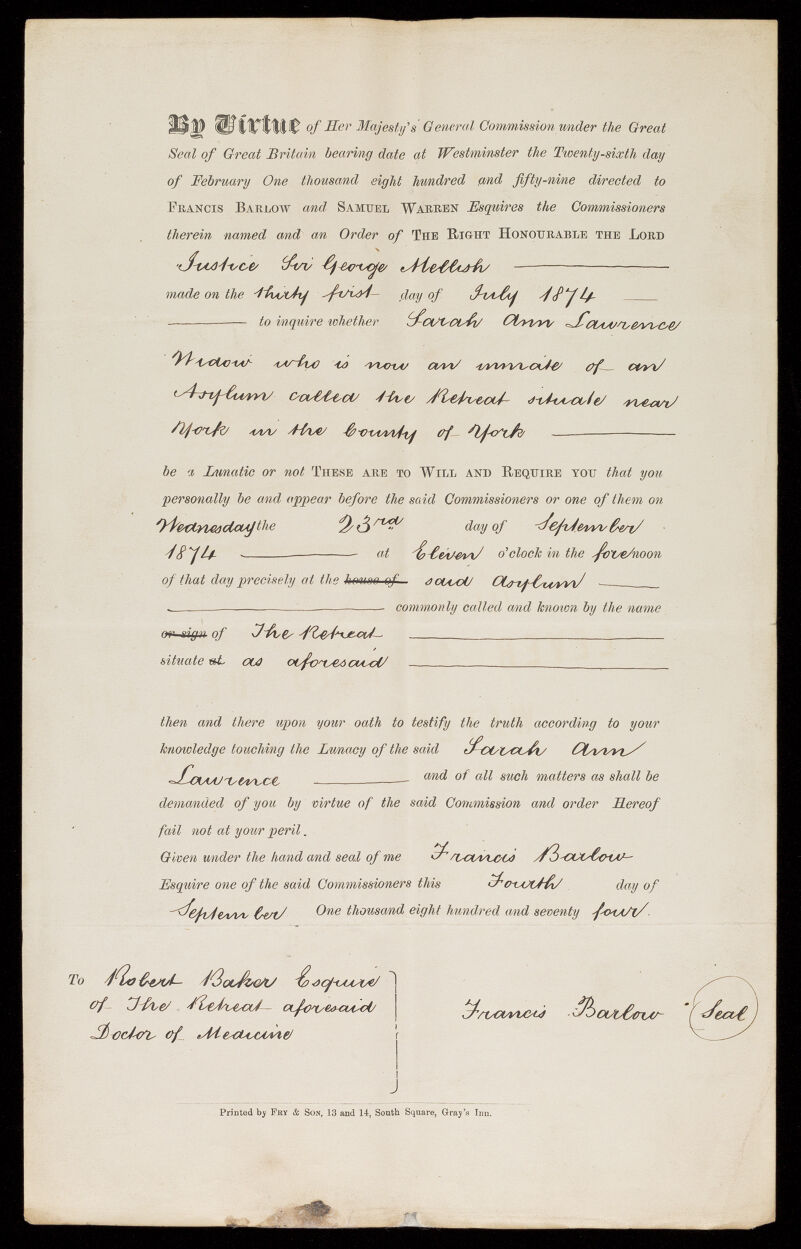 By Virtue of Her Majesty's General Commission under the Great
Seal of Great Britain bearing date at Westminster the Twenty-sixth day
of February One thousand eight hundred and fifty-nine directed to
FRANCIS BARLOW and SAMUEL WARREN Esquires the Commissioners
therein named and an Order of THE RIGHT HONOURABLE THE LORD
Justice Sir George Mellish
made on the thirty first day of July 1874
to inquire whether Sarah Ann Lawrence
Widow who is now an inmate of an
Asylum called the Retreat situate near
York in the County of York
be a Lunatic or not THESE ARE TO WILL AND REQUIRE YOU that you
personally be and appear before the said Commissioners or one of them on
Wednesday the 23rd day of September
1874 at Eleven o'clock in the forenoon
of that day precisely at the house of said Asylum
commonly called and known by the name
or sign of The Retreat
situate at as aforesaid
then and there upon your oath to testify the truth according to your
knowledge touching the Lunacy of the said Sarah Ann
Lawrence and of all such matters as shall be
demanded of you by virtue of the said Commission and order Hereof
fail not at your peril.
Given under the hand and seal of me Francis Barlow
Esquire one of the said Commissioners this Fourth day of
September One thousand eight hundred and seventy four.
To Robert Baker Esquire
of The Retreat aforesaid
Doctor of Medicine
Francis Barlow Seal
Printed by FRY & SON, 13 and 14, South Square, Gray's Inn.